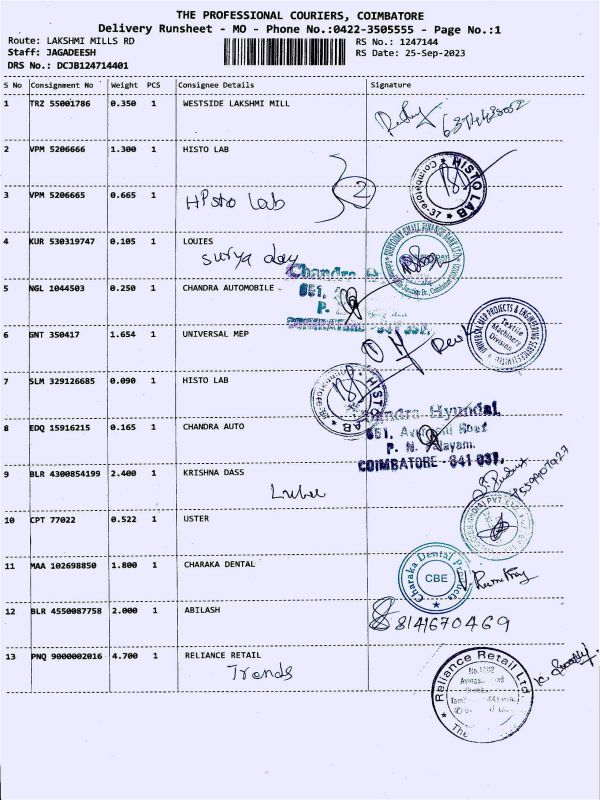 THE PROFESSIONAL COURIERS, COIMBATORE
Delivery Runsheet - MO - Phone No.:0422-3505555 - Page No.:1
Route: LAKSHMI MILLS RD
RS No.: 1247144
Staff: JAGADEESH
RS Date: 25-Sep-2023
DRS No.: DCJB124714401
S No Consignment No Weight PCS Consignee Details Signature
1 TRZ 55001786 0.350 1 WESTSIDE LAKSHMI MILL
2 VPM 5206666 1.300 1 HISTO LAB
HISTO LAB
Coimbatore-37
3 VPM 5206665 0.665 1 Histo Lab
2
4 KUR 530319747 0.105 1 LOUIES
Surya day
5 NGL 1044503 0.250 1 CHANDRA AUTOMOBILE -
Chandra H
681,
P.
COIMBATORE - 641 037.
6 GNT 350417 1.654 1 UNIVERSAL MEP
Textile
Machinery
Division
7 SLM 329126685 0.090 1 HISTO LAB
HISTO LAB
8 EDQ 15916215 0.165 1 CHANDRA AUTO
Chandra Hyundai,
P. N.
COIMBATORE - 641 037.
9 BLR 4300854199 2.400 1 KRISHNA DASS
10 CPT 77022 0.522 1 USTER
11 MAA 102698850 1.800 1 CHARAKA DENTAL
Charaka Dental Products
CBE
12 BLR 4550087758 2.000 1 ABILASH
8141670469
13 PNQ 9000002016 4.700 1 RELIANCE RETAIL
Trends
Reliance Retail Ltd.